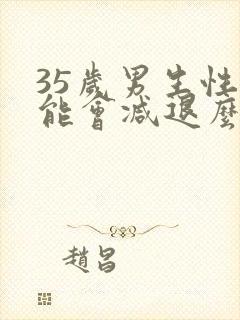 35歲男生性
能會減退麼
趙昌